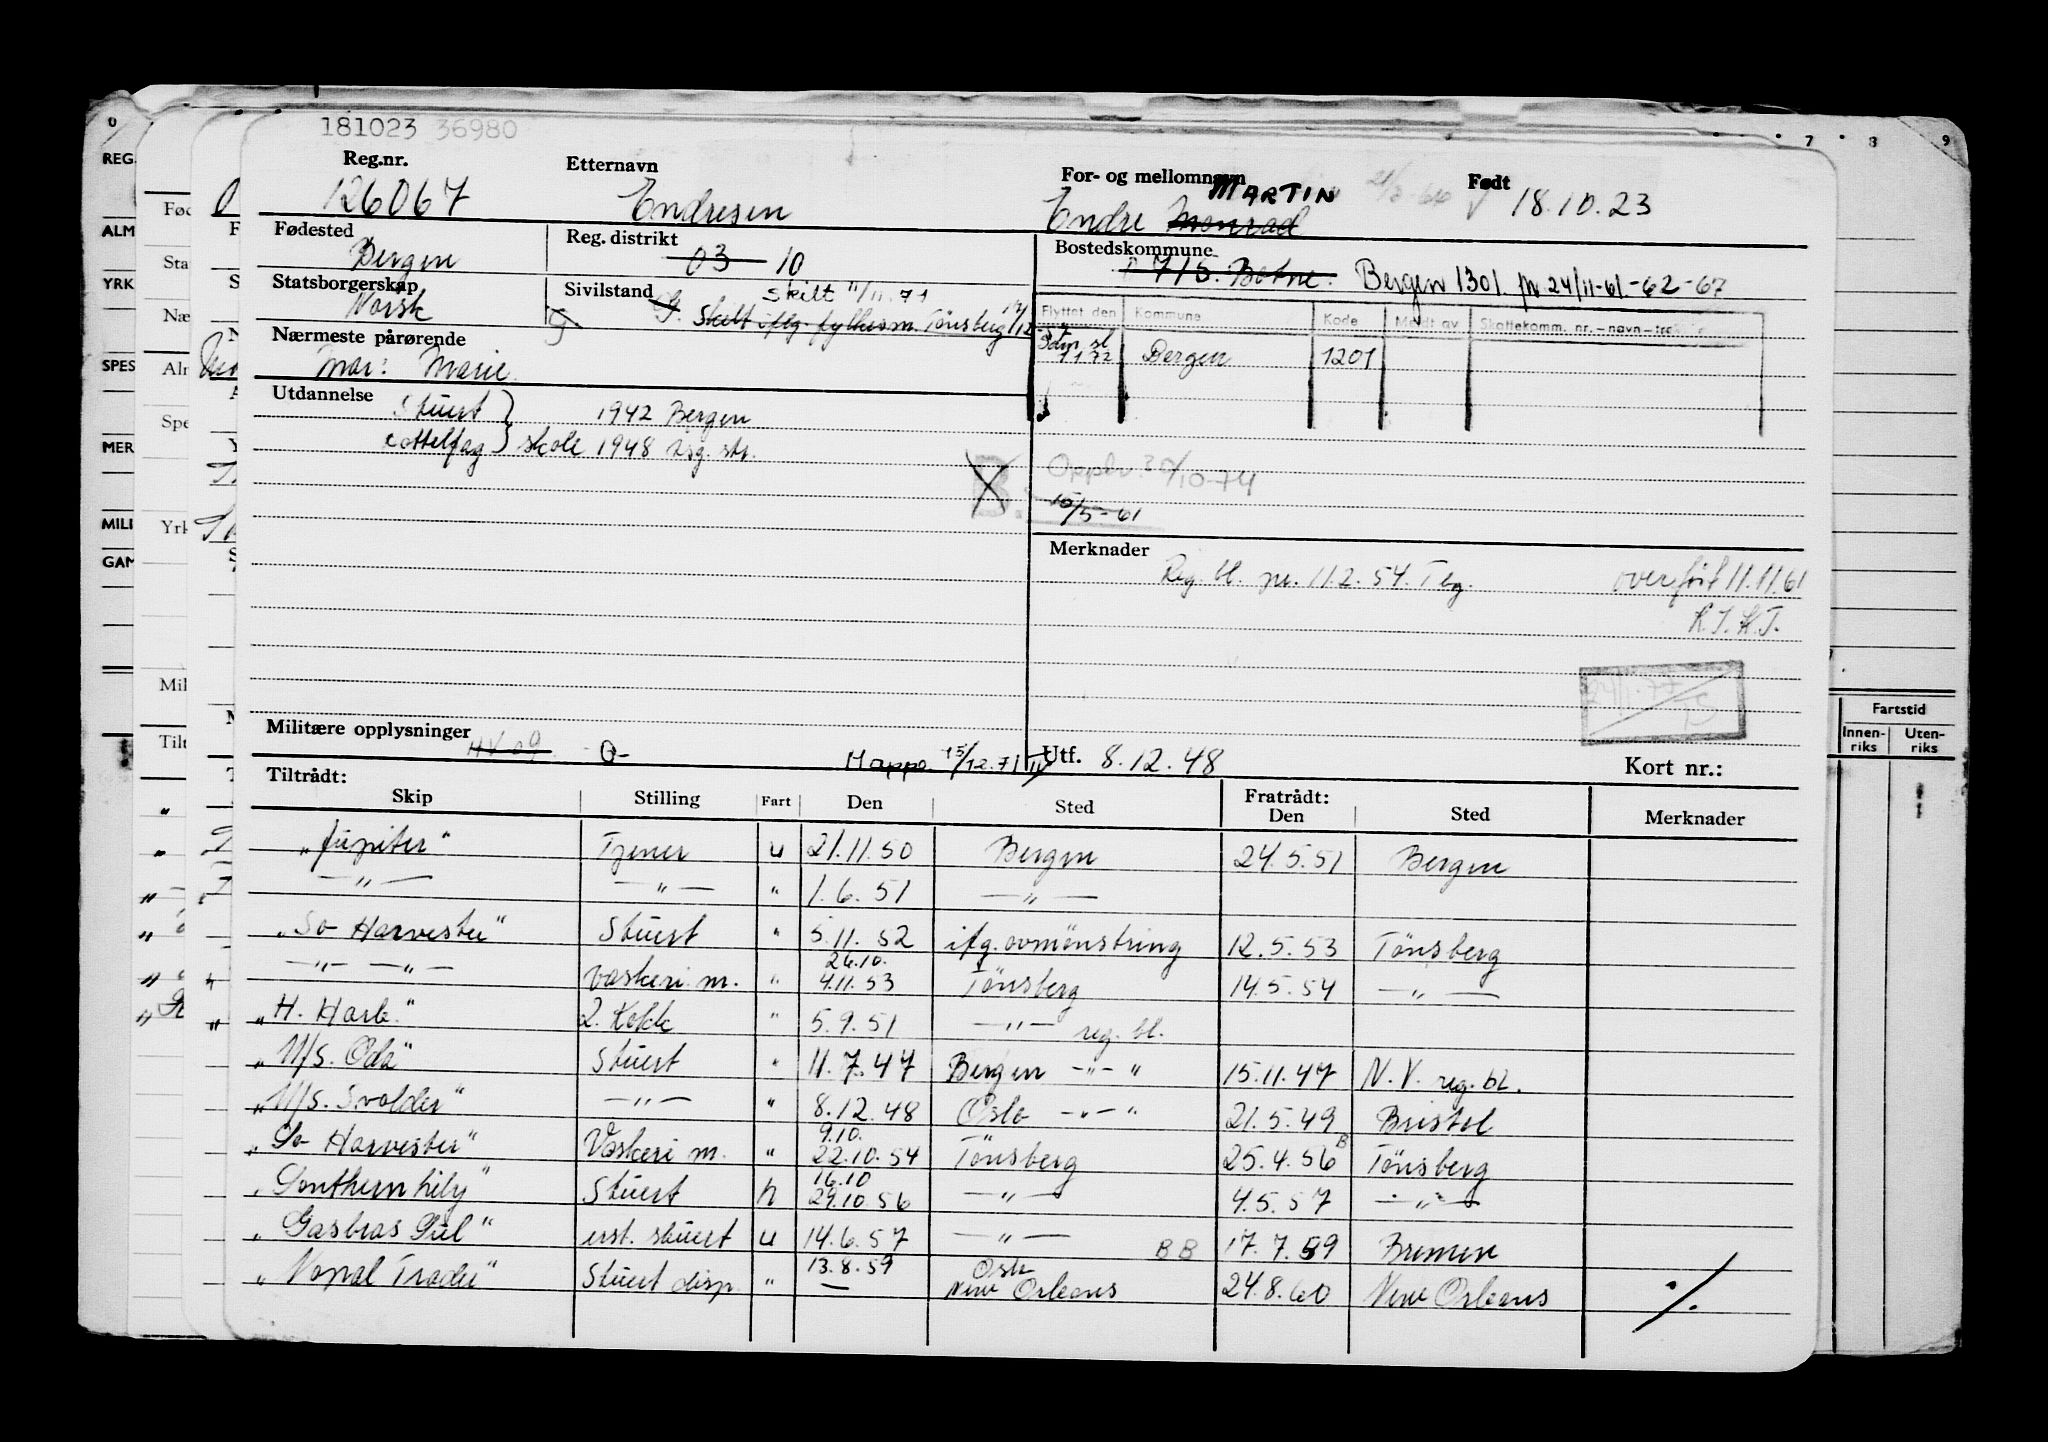 181023 36980
Reg.nr. Etternavn For- og mellomnavn Født
126067 Endresen Endre Monrad MARTIN 18.10.23
Fødested Reg. distrikt Bostedskommune
Bergen 03 10 715. Botne. Bergen 1301. pr 24/11-61.-62-67
Statsborgerskap Sivilstand
Norsk G. Skilt 11/11.71
Skilt iflg. fylkesm. Tönsberg
Flyttet den Kommune Kode Meldt av Skattekomm. nr.-navn-
Nærmeste pårørende
Mor: Marie. 1 1 72 Bergen 1201
Utdannelse
Stuert } 1942 Bergen
Cottelfag } skole 1948
B. Oppbr. 30/10-74
10/5-61
Merknader
Reg. bl. pr. 11.2.54. Tbg. overført 11.11.61
K.J.H.T.
24/1-77
Militære opplysninger HV-09 -0- Mappe 15/12.71 Utf. 8.12.48
Tiltrådt: Kort nr.:
Skip Stilling Fart Den Sted Fratrådt: Den Sted Merknader
„Jupiter“ Tjener u 21.11.50 Bergen 24.5.51 Bergen
—„— —„— " 1.6.51 —„—
„So Harvester“ Stuert " 5.11.52 ifg. avmönstring 12.5.53 Tönsberg
—„— —„— vaskeri m. " 26.10. 4.11.53 Tönsberg 14.5.54 —„—
„H. Harb.“ 2. Kokk " 5.9.51 —„— reg. bl.
„M/s. Oda“ Stuert " 11.7.47 Bergen -„- " 15.11.47 N.Y. reg. bl.
„M/s. Svolder“ —„— " 8.12.48 Oslo -„- " 21.5.49 Bristol
„So Harvester“ Vaskeri m. " 9.10. 22.10.54 Tönsberg 25.4.56 B Tönsberg
„Southern Lily“ Stuert h 16.10 29.10.56 —„— 4.5.57 —„—
„Gasbras Sul“ erst. stuert u 14.6.57 —„— BB 17.7.59 Bremen
„Nopal Trader“ Stuert disp. " 13.8.59 — Oslo New Orleans 24.8.60 New Orleans ./.
Fartstid
Innen-riks Uten-riks
7 8 9
0
REG.
ALM
YRK
SPES
MER
MILI
GAM
Fød
Sta
Næ
Aln
Spe
Yrk
Mil
Tilt